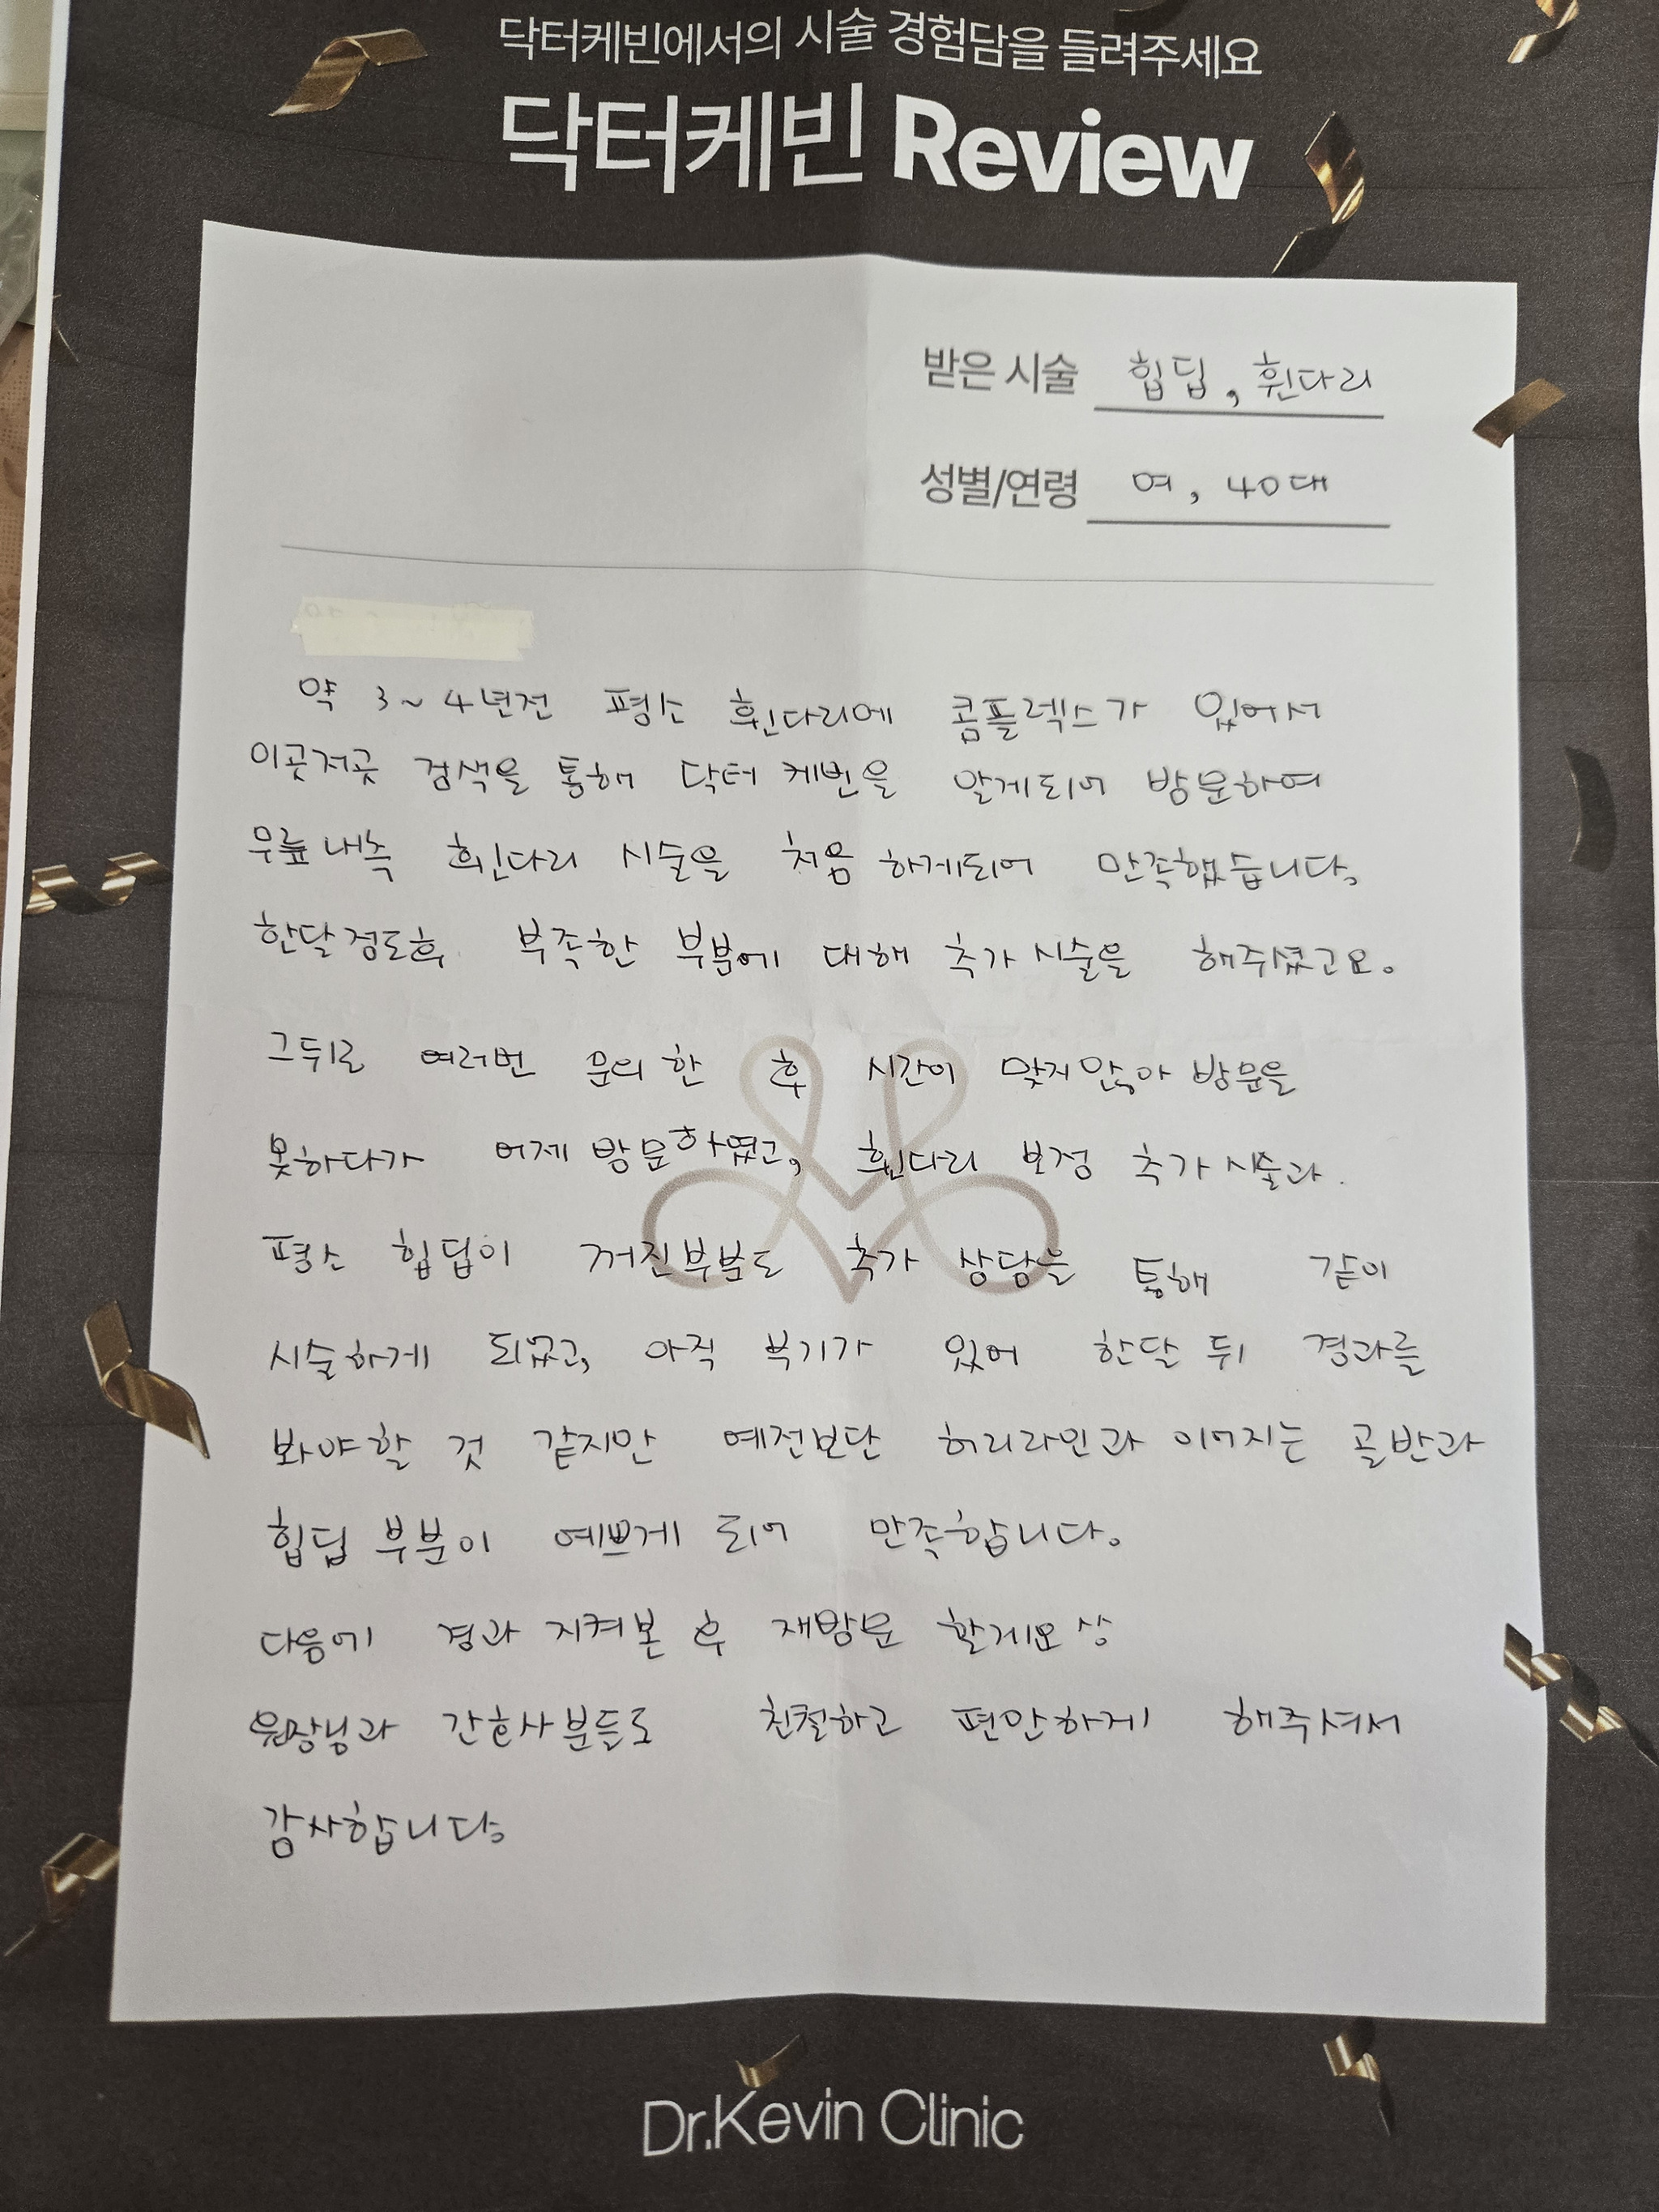 닥터케빈에서의 시술 경험담을 들려주세요
닥터케빈 Review
받은 시술 힙딥, 휜다리
성별/연령 여, 40대
약 3~4년전 평소 휜다리에 콤플렉스가 있어서
이곳저곳 검색을 통해 닥터케빈을 알게되어 방문하여
무릎내측 휜다리 시술을 처음 하게되어 만족했습니다.
한달정도후 부족한 부분에 대해 추가시술을 해주셨고요.
그뒤로 여러번 문의한 후 시간이 맞지않아 방문을
못하다가 어제 방문하였고, 휜다리 보정 추가시술과.
평소 힙딥이 꺼진부분도 추가 상담을 통해 같이
시술하게 되었고, 아직 붓기가 있어 한달 뒤 경과를
봐야할 것 같지만 예전보단 허리라인과 이어지는 골반과
힙딥 부분이 예쁘게 되어 만족합니다.
다음에 경과 지켜본 후 재방문 할게요^^
원장님과 간호사분들도 친절하고 편안하게 해주셔서
감사합니다.
Dr.Kevin Clinic